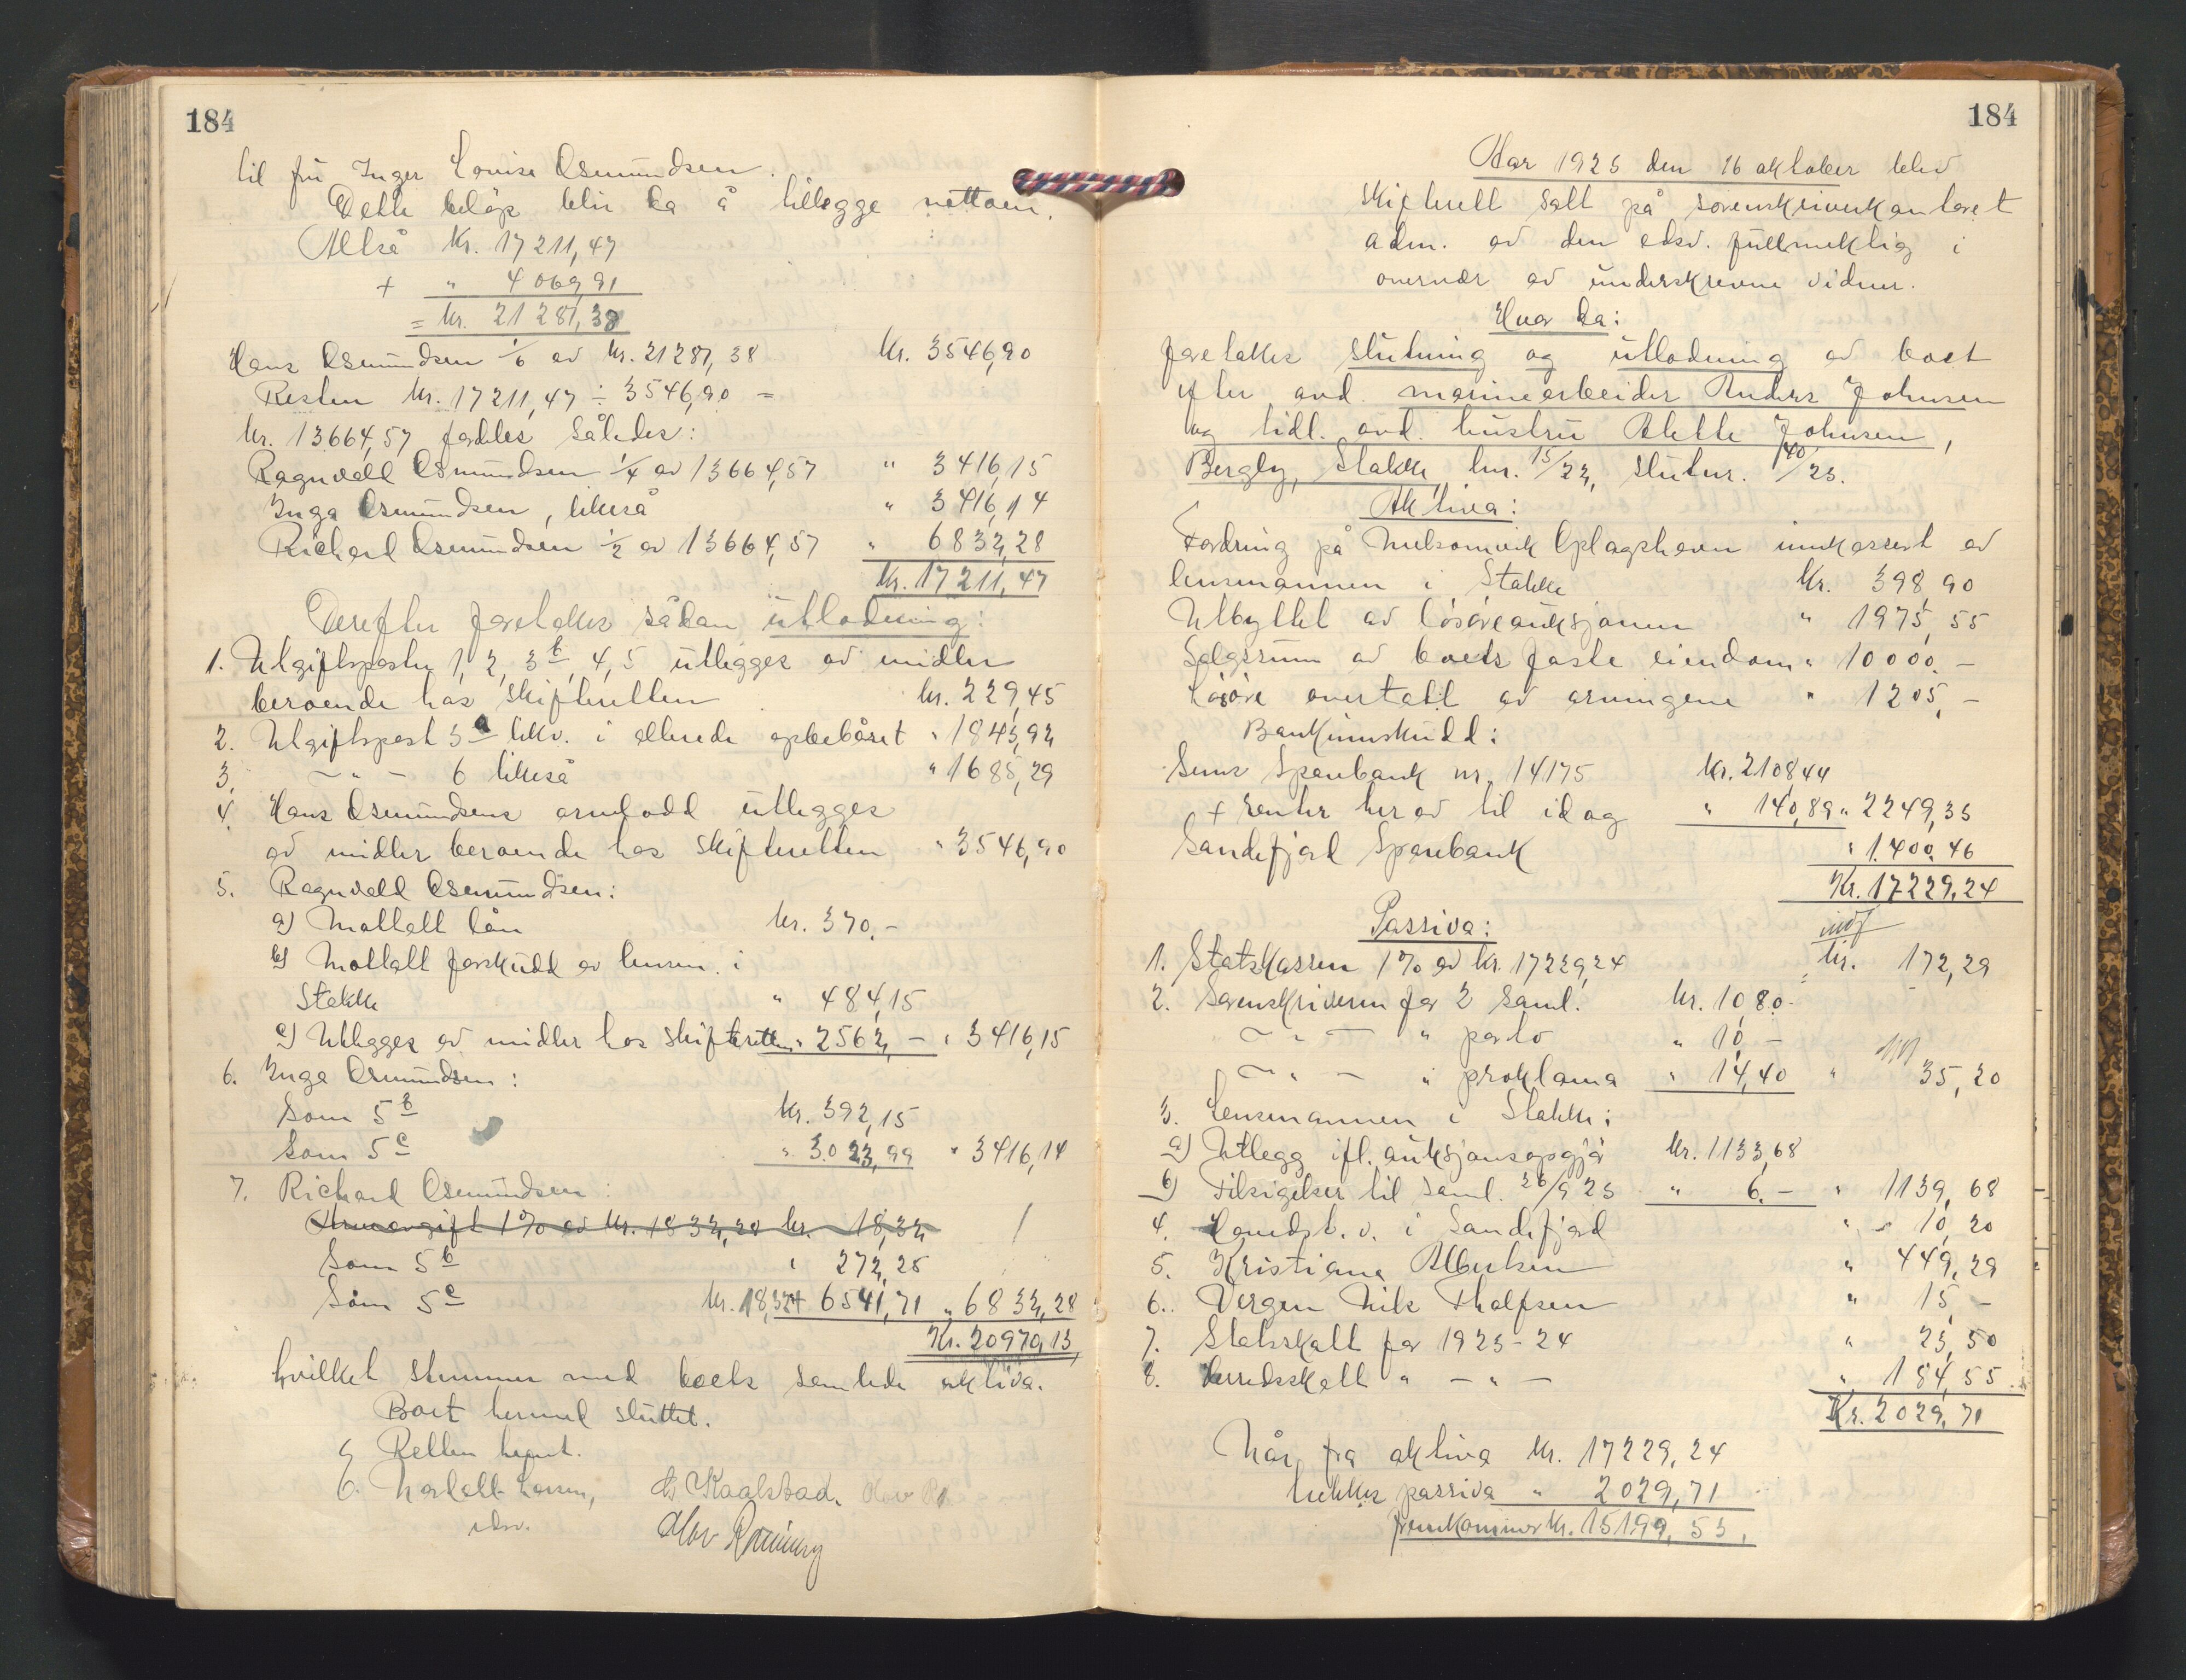 184
til fru Inger Lovise Osmundsen.
Dette beløp blir da å tillegge nettoen.
Altså Kr. 17211,47
+ " 4069,91
= kr. 21281,38
Hans Osmundsen 1/6 av kr. 21281,38 kr. 3546,90
Resten kr. 17211,47 ÷ 3546,90 =
kr. 13664,57 fordeles således:
Ragnvald Osmundsen 1/4 av 13664,57 " 3416,15
Inga Osmundsen, likeså " 3416,14
Richard Osmundsen 1/2 av 13664,57 " 6832,28
Kr. 17211,47
Derefter foretokes sådan utlodning:
1. Utgiftsposter 1, 2, 3b, 4, 5 utlegges av midler
beroende hos skifteretten kr. 229,45
2. Utgiftspost 3a likv. i allerede opbebåret " 1843,92
3. — " — 6 likeså " 1685,29
4. Hans Osmundsens arvelodd utlegges
av midler beroende hos skifteretten " 3546,90
5. Ragnvald Osmundsen:
a) Mottatt lån kr. 370.-
b) Mottatt forskudd av lensm. i
Stokke " 484,15
c) Utlegges av midler hos skifteretten " 2562,- " 3416,15
6. Inga Osmundsen:
Som 5b kr. 392,15
Som 5c " 3.023,99 " 3416,14
7. Richard Osmundsen:
Arveavgift 1% av kr. 1832,28 kr. 18,32
Som 5b " 272,25
Som 5c kr. 18,32+ 6541,71 " 6832,28
Kr. 20970,13
hvilket stemmer med boets samlede aktiva.
Boet hermed sluttet.
Retten hevet.
Kaalstad. Olov
edsv.
Olov Rønning
184
Aar 1925 den 16 oktober blev
skifterett satt på sorenskriverkontoret
adm. av den edsv. fullmektig i
overvær av underskrevne vidner.
Hvor da:
foretokes slutning og utlodning av boet
efter avd. marinearbeider Anders Johnsen
og tidl. avd. hustru Alette Johnsen,
Bergly, Stokke, bnr. 15/23, slutnr. 40/25.
Aktiva:
Fordring på Melsomvik Oplagshavn innkassert av
lensmannen i Stokke kr. 398,90
Utbyttet av løsøreauksjonen " 1975,55
Salgssum av boets faste eiendom " 10000.-
Løsøre overtatt av arvingene " 1205,-
Bankinnskudd:
Sems Sparebank nr. 14175 kr. 2108,44
+ renter herav til idag " 140,89 " 2249,33
Sandefjord Sparebank " 1.400,46
Kr. 17229,24
Passiva:
1. Statskassen 1% av kr. 17229,24 kr. 172,29
2. Sorenskriveren for 2 saml. kr. 10,80
— " — " porto " 10,-
— " — " proklama " 14,40 " 35,20
3. Lensmannen i Stokke:
a) Utlegg ifl. auksjonsopgjør kr. 1133,68
b) Tilsigelser til saml. 26/9 25 " 6.- " 1139,68
4. i Sandefjord " 10,20
5. Kristiane Albertsen " 449,29
6. Vergen Nils Tholfsen " 15,-
7. Statsskatt for 1923-24 " 23,50
8. Herredsskatt " — " — " 184,55
Kr. 2029,71
Når fra aktiva kr. 17229,24
trekkes passiva " 2029,71
fremkommer kr. 15199,53,